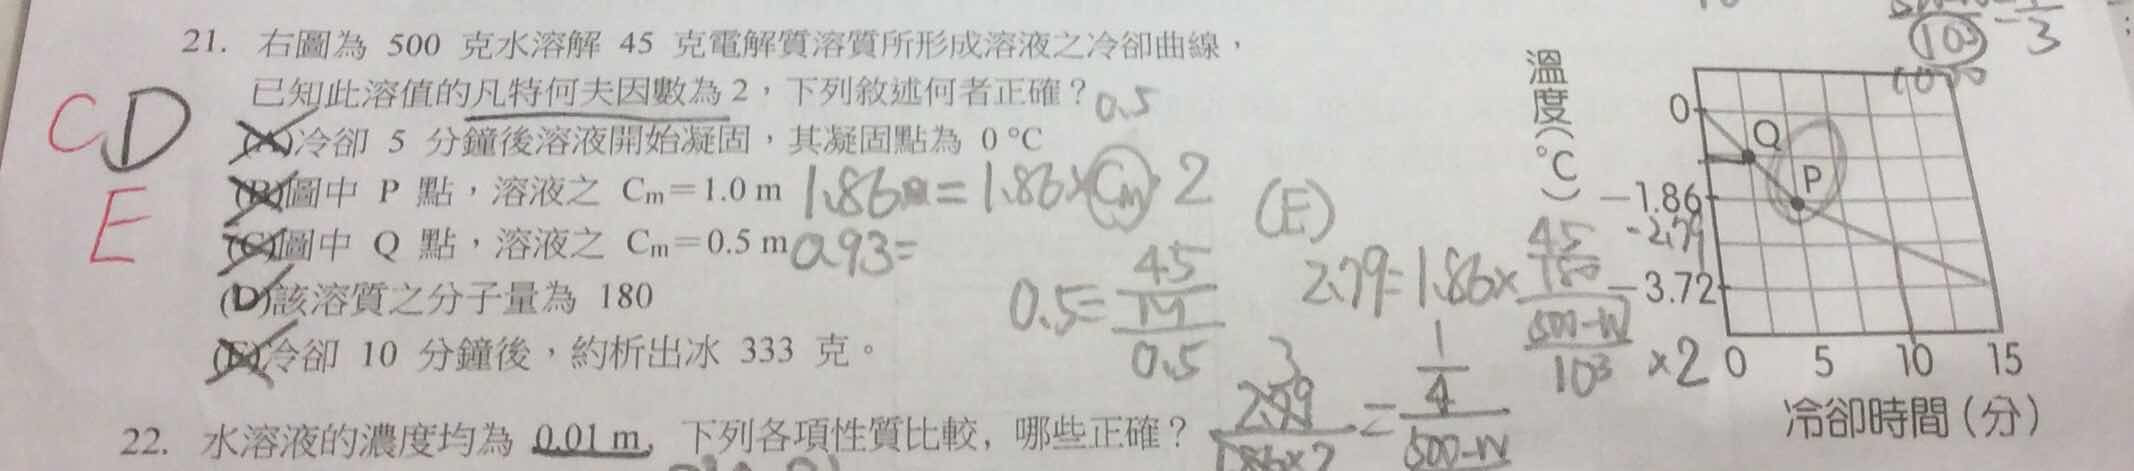 21. 右圖為 500 克水溶解 45 克電解質溶質所形成溶液之冷卻曲線，
已知此溶值的凡特何夫因數為 2，下列敘述何者正確？ 0.5
(A)冷卻 5 分鐘後溶液開始凝固，其凝固點為 0 °C
(B)圖中 P 點，溶液之 Cm＝1.0 m 1.86 = 1.86×Cm·2
(C)圖中 Q 點，溶液之 Cm＝0.5 m 0.93=
(D)該溶質之分子量為 180
(E)冷卻 10 分鐘後，約析出冰 333 克。
CD
E
0.5= 45/M / 0.5
(E)
2.79=1.86× 45/180 / 500-W/10³ ×2
3
2.79/1.86×2 = 1/4 / 500-W
10³
1/3
溫度(°C)
0
Q
P
−1.86
-2.79
−3.72
0 5 10 15
冷卻時間(分)
22. 水溶液的濃度均為 0.01 m，下列各項性質比較，哪些正確？